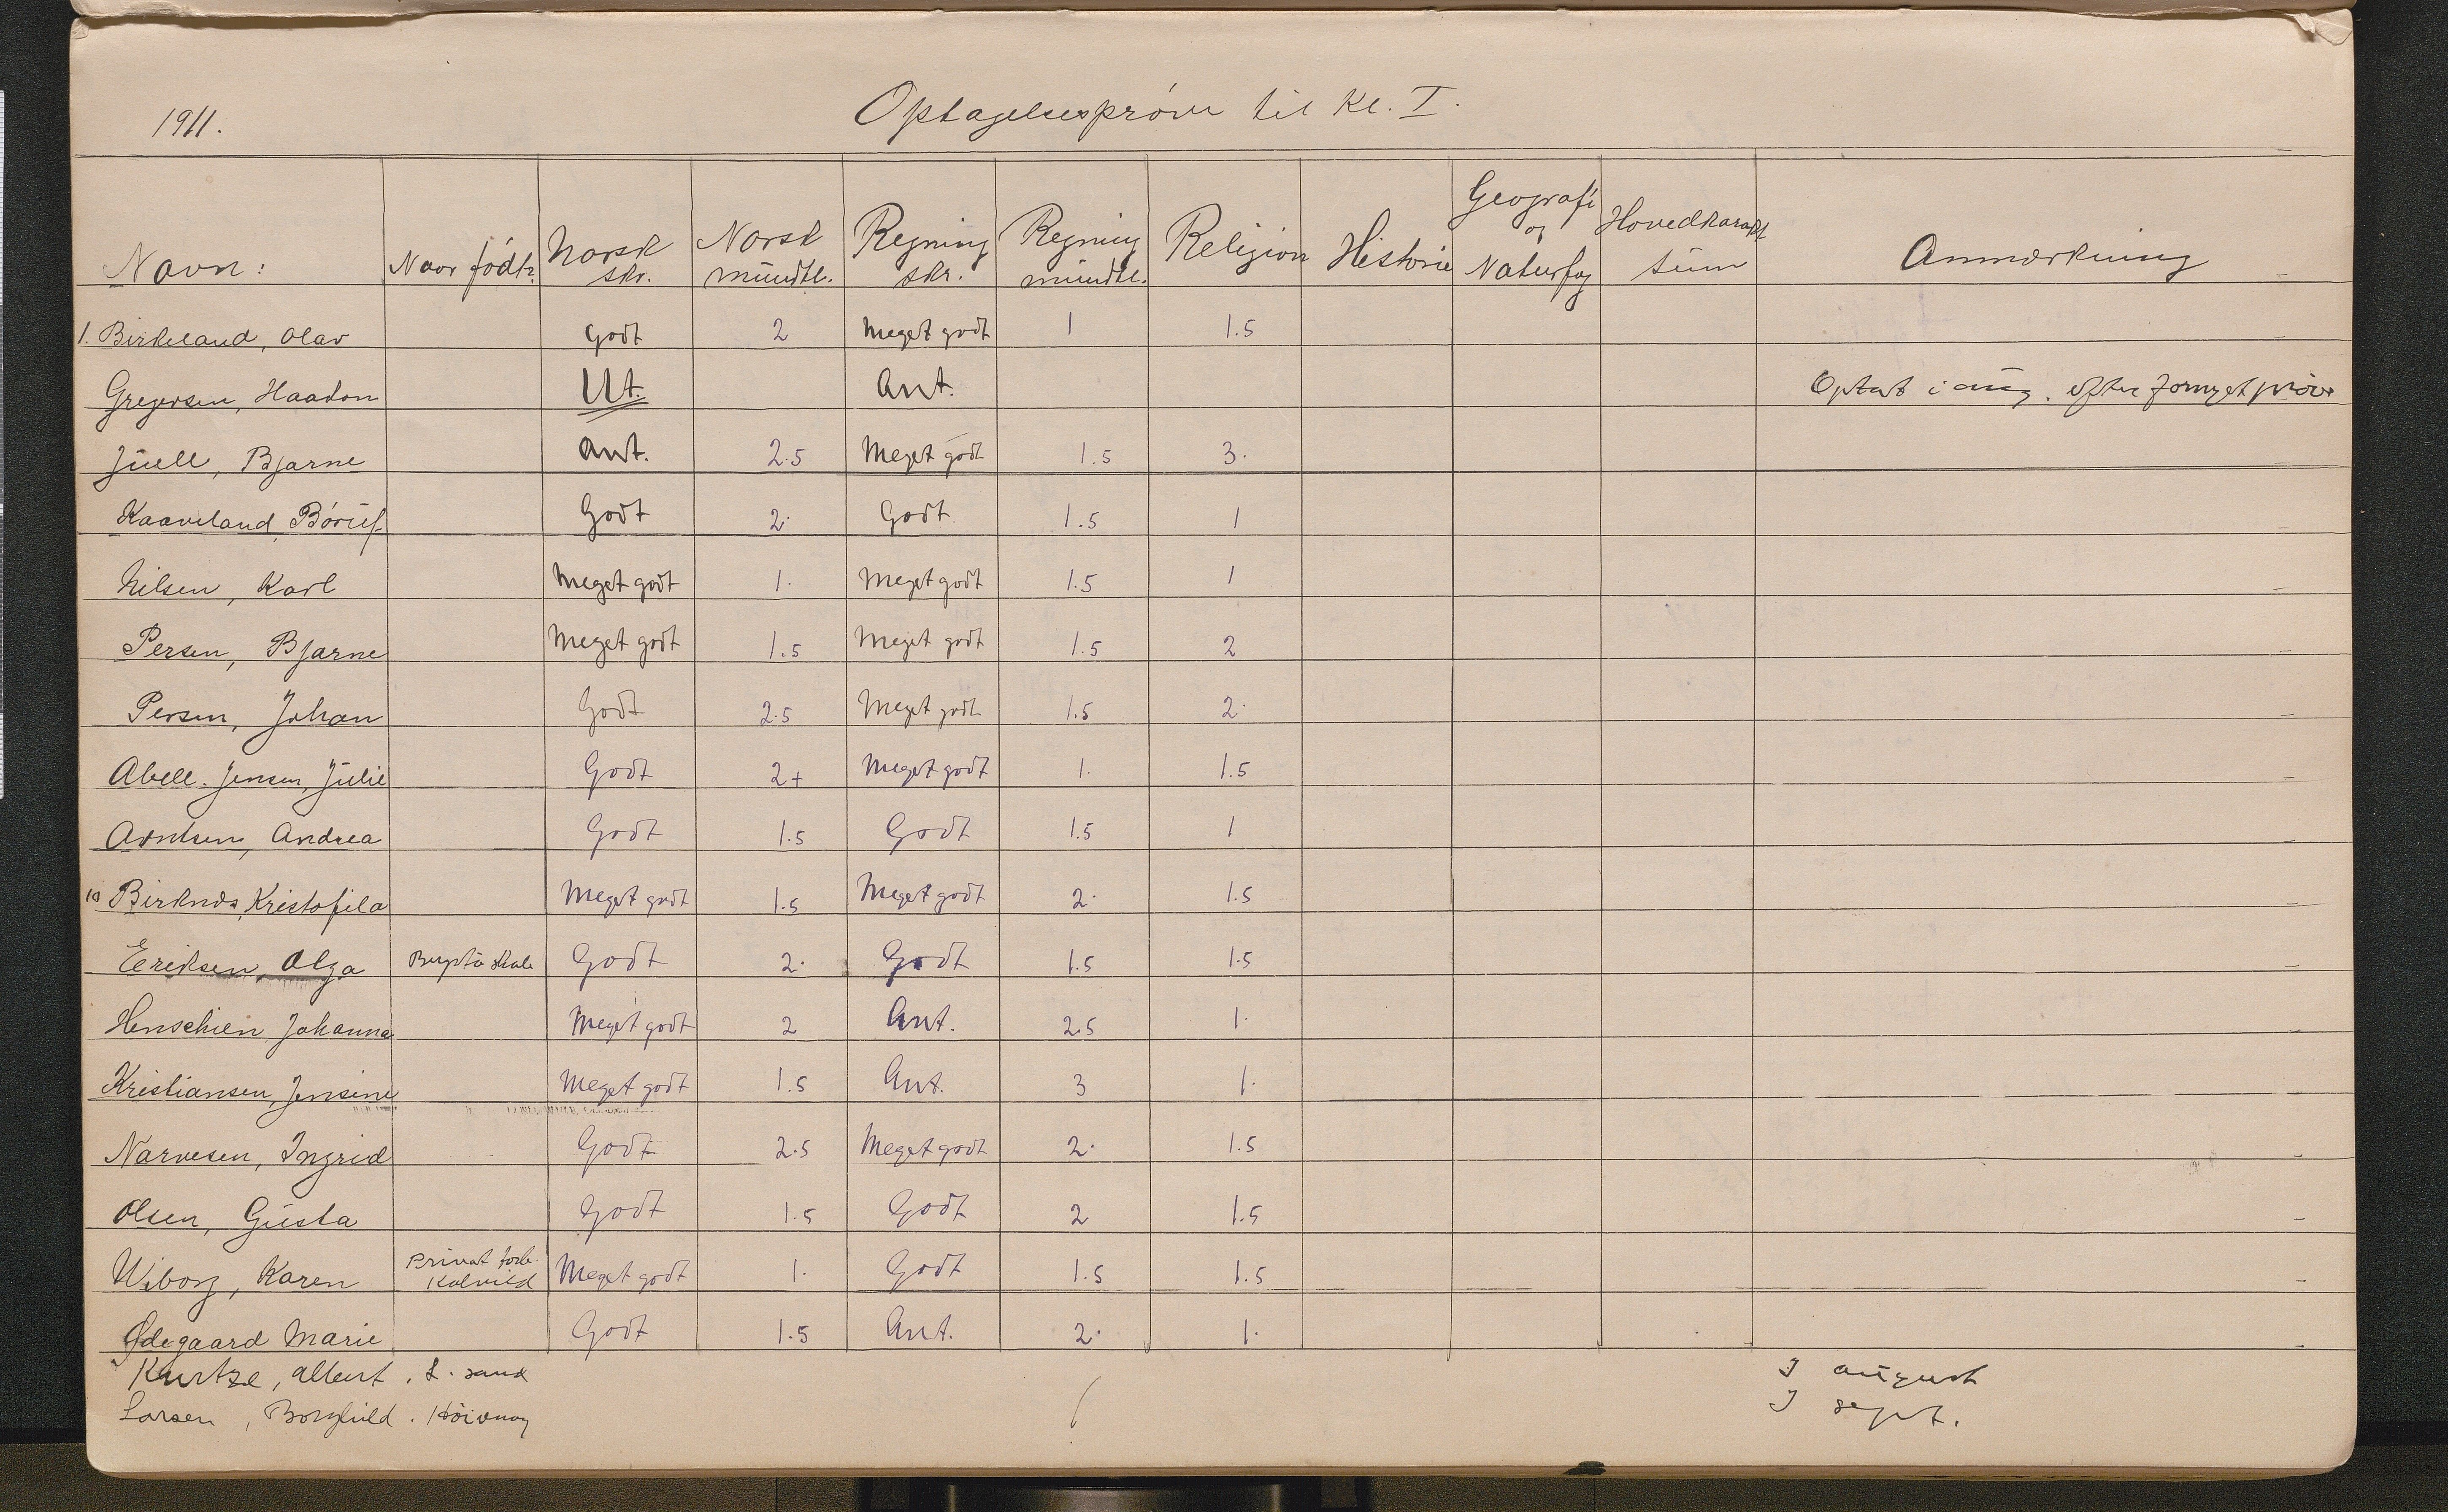 1911. Optagelsesprøve til Kl. I.
Navn: Naar født? Norsk skr. Norsk mündtl. Regning skr. Regning mündtl. Religion Historie Geografi og Natürfag Hovedkarakt tüm Anmærkning
1. Birkeland, Olav Godt 2 Meget godt 1 1.5
Gregersen, Haakon Ut. Ant. Optat i aüg. efter fornyet prøve
Jüell, Bjarne Ant. 2.5 Meget godt 1.5 3.
Kaaveland, Børüf Godt 2. Godt. 1.5 1
Nilsen, Karl Meget godt 1. Meget godt 1.5 1
Persen, Bjarne Meget godt 1.5 Meget godt 1.5 2
Persen, Johan Godt 2.5 Meget godt 1.5 2.
Abell-Jensen, Jülie Godt 2+ Meget godt 1. 1.5
Arntsen, Andrea Godt 1.5 Godt 1.5 1
10 Birknds, Kristofila Meget godt 1.5 Meget godt 2. 1.5
Eriksen, Olga Godt 2. Godt 1.5 1.5
Henschien Johanna Meget godt 2 Ant. 2.5 1.
Kristiansen, Jensine Meget godt 1.5 Ant. 3 1.
Narvesen, Ingrid Godt 2.5 Meget godt 2. 1.5
Olsen, Güsta Godt 1.5 Godt 2 1.5
Wiborg, Karen Privat forb. Kolvild Meget godt 1. Godt 1.5 1.5
Ødegaard Marie Godt 1.5 Ant. 2. 1.
Kurtze, Albert, L. sand I aügust
Larsen, Borghild. Høivaag I sept.